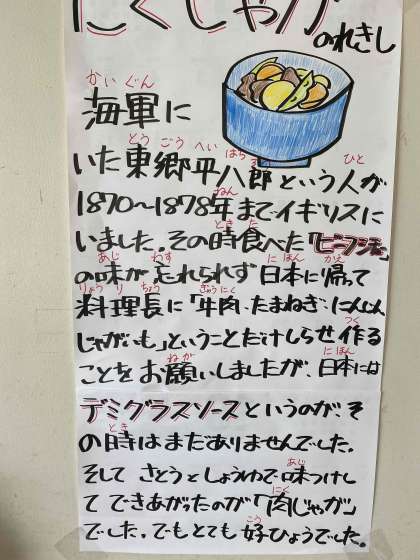 にくじゃが
のれきし
海軍に
いた東郷平八郎という人が
1870〜1878年までイギリスに
いました。その時食べた「ビーフシチュー」
の味が忘れられず日本に帰って
料理長に「牛肉、たまねぎ、にんじん
じゃがいも」ということだけしらせ作る
ことをお願いしましたが、日本には
デミグラスソースというのが、そ
の時はまだありませんでした。
そして さとうとしょうゆで味つけし
て できあがったのが「肉じゃが」
でした。でもとても好ひょうでした。